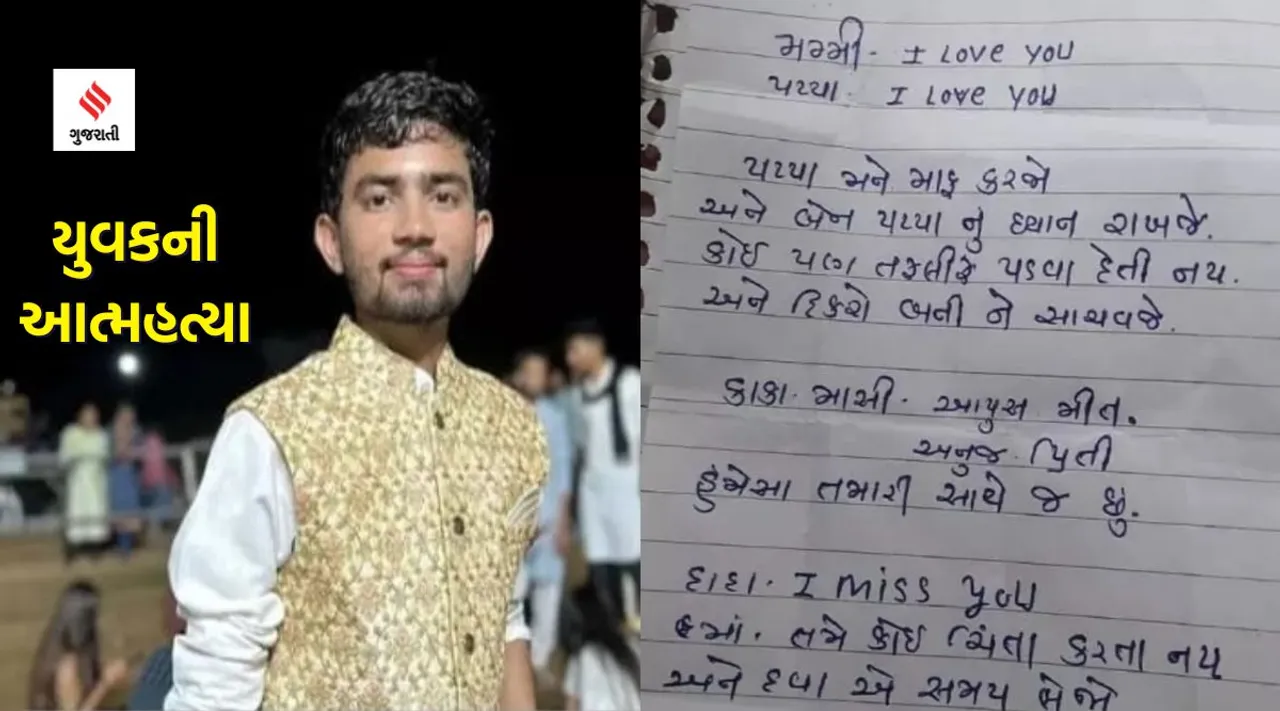 ગુજરાતી
યુવકની
આત્મહત્યા
મમ્મી. I LOVE YOU
પપ્પા. I LOVE YOU
પપ્પા મને માફ કરજો
અને બેન પપ્પા નું ધ્યાન રાખજે.
કોઈ પણ તકલીફ પડવા દેતી નય.
અને દિકરો બની ને સાચવજે.
કાકા. માસી. આયુસ મીત.
અનુજ. પ્રિતી
હંમેસા તમારી સાથે જ છું.
દાદા. I MISS YOU
માં. તમે કોઈ ચિંતા કરતા નય
અને દવા એ સમય લેજો